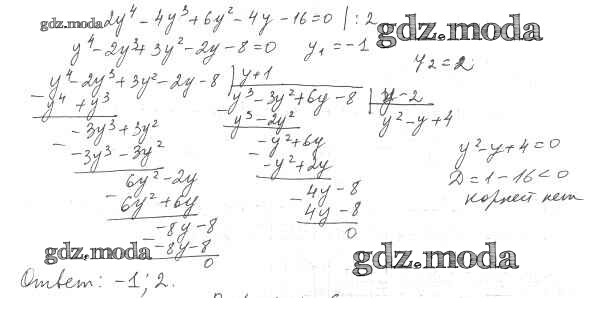 gdz.moda 2y⁴ - 4y³ + 6y² - 4y - 16 = 0 | : 2
gdz.moda
y⁴ - 2y³ + 3y² - 2y - 8 = 0 y₁ = -1
y₂ = 2
y⁴ - 2y³ + 3y² - 2y - 8 | y + 1
- y⁴ + y³
y³ - 3y² + 6y - 8 | y - 2
- 3y³ + 3y²
- -3y³ - 3y²
6y² - 2y
- 6y² + 6y
- 8y - 8
- -8y - 8
0
- y³ - 2y²
y² - y + 4
- y² + 6y
- -y² + 2y
4y - 8
- 4y - 8
0
y² - y + 4 = 0
D = 1 - 16 < 0
корней нет
gdz.moda
gdz.moda
Ответ: -1; 2.